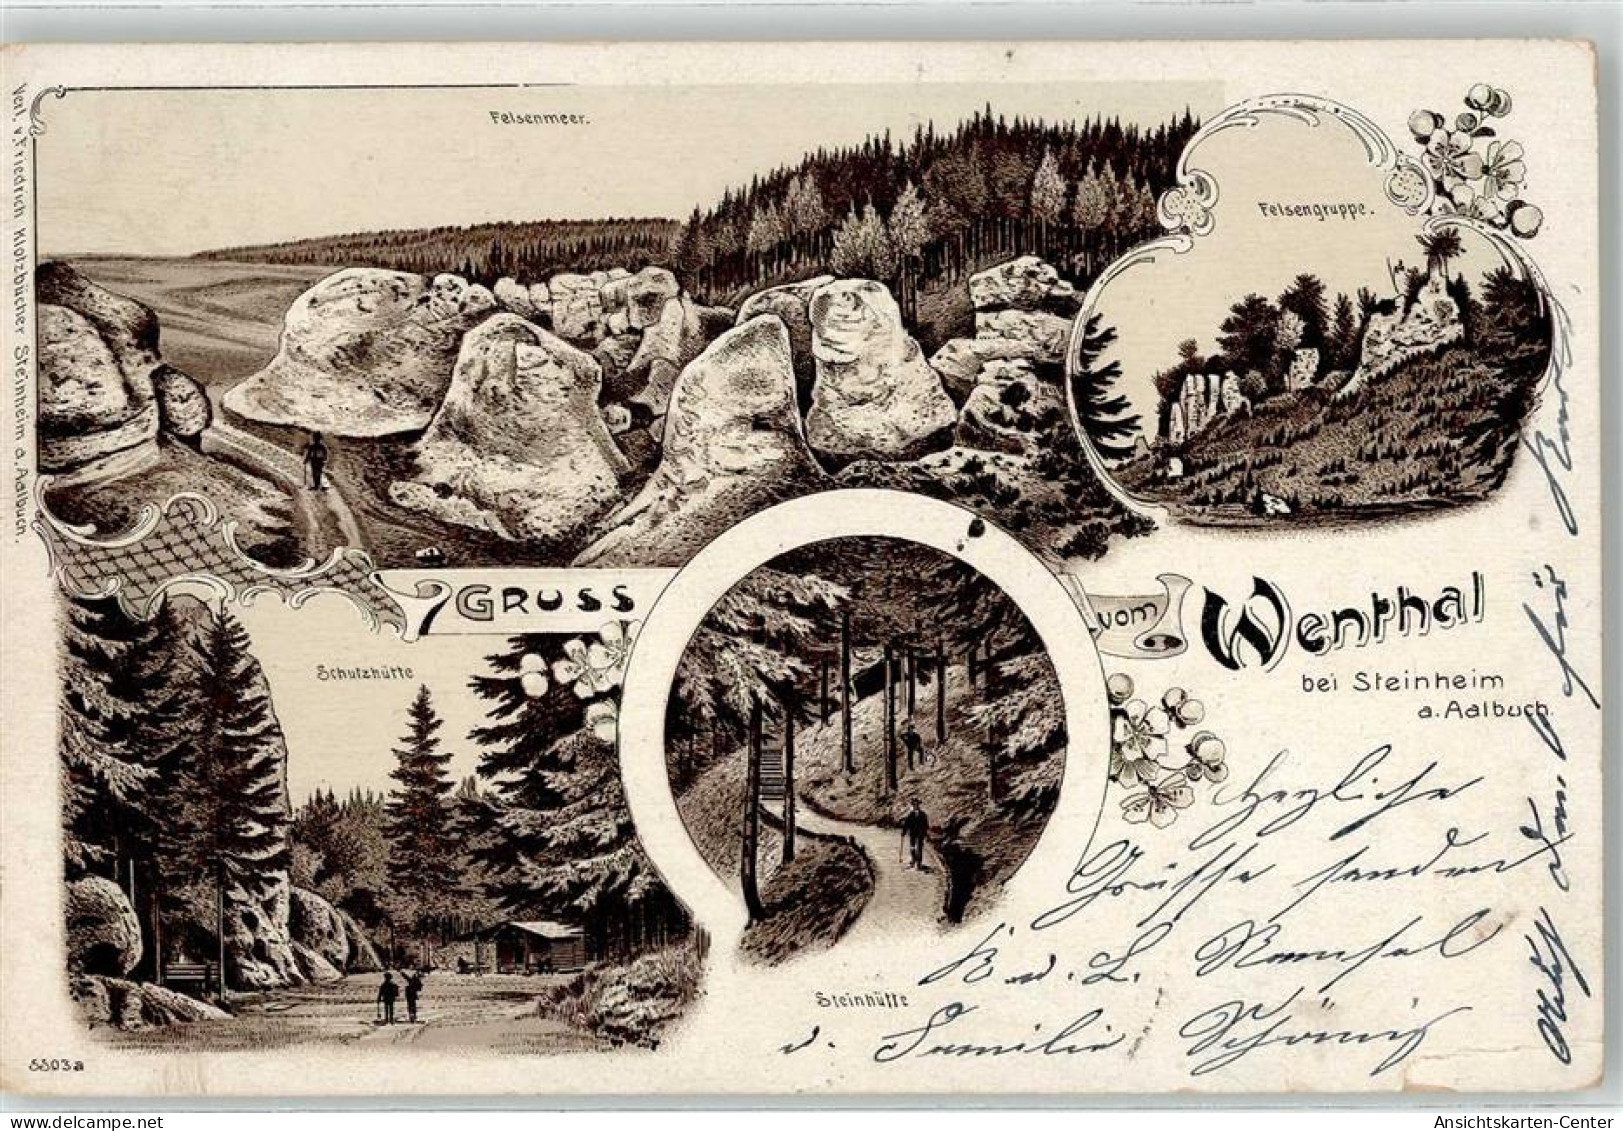 Verl. v. Friedrich Klotzbücher Steinheim a. Aalbuch.
Felsenmeer.
Felsengruppe.
GRUSS
vom
Wenthal
bei Steinheim
a. Aalbuch.
Schutzhütte
Steinhütte
Herzliche
Grüsse senden
K. u. L.
u. Familie Schönig
für Karte
5503a
AnsichtsKarten-Center